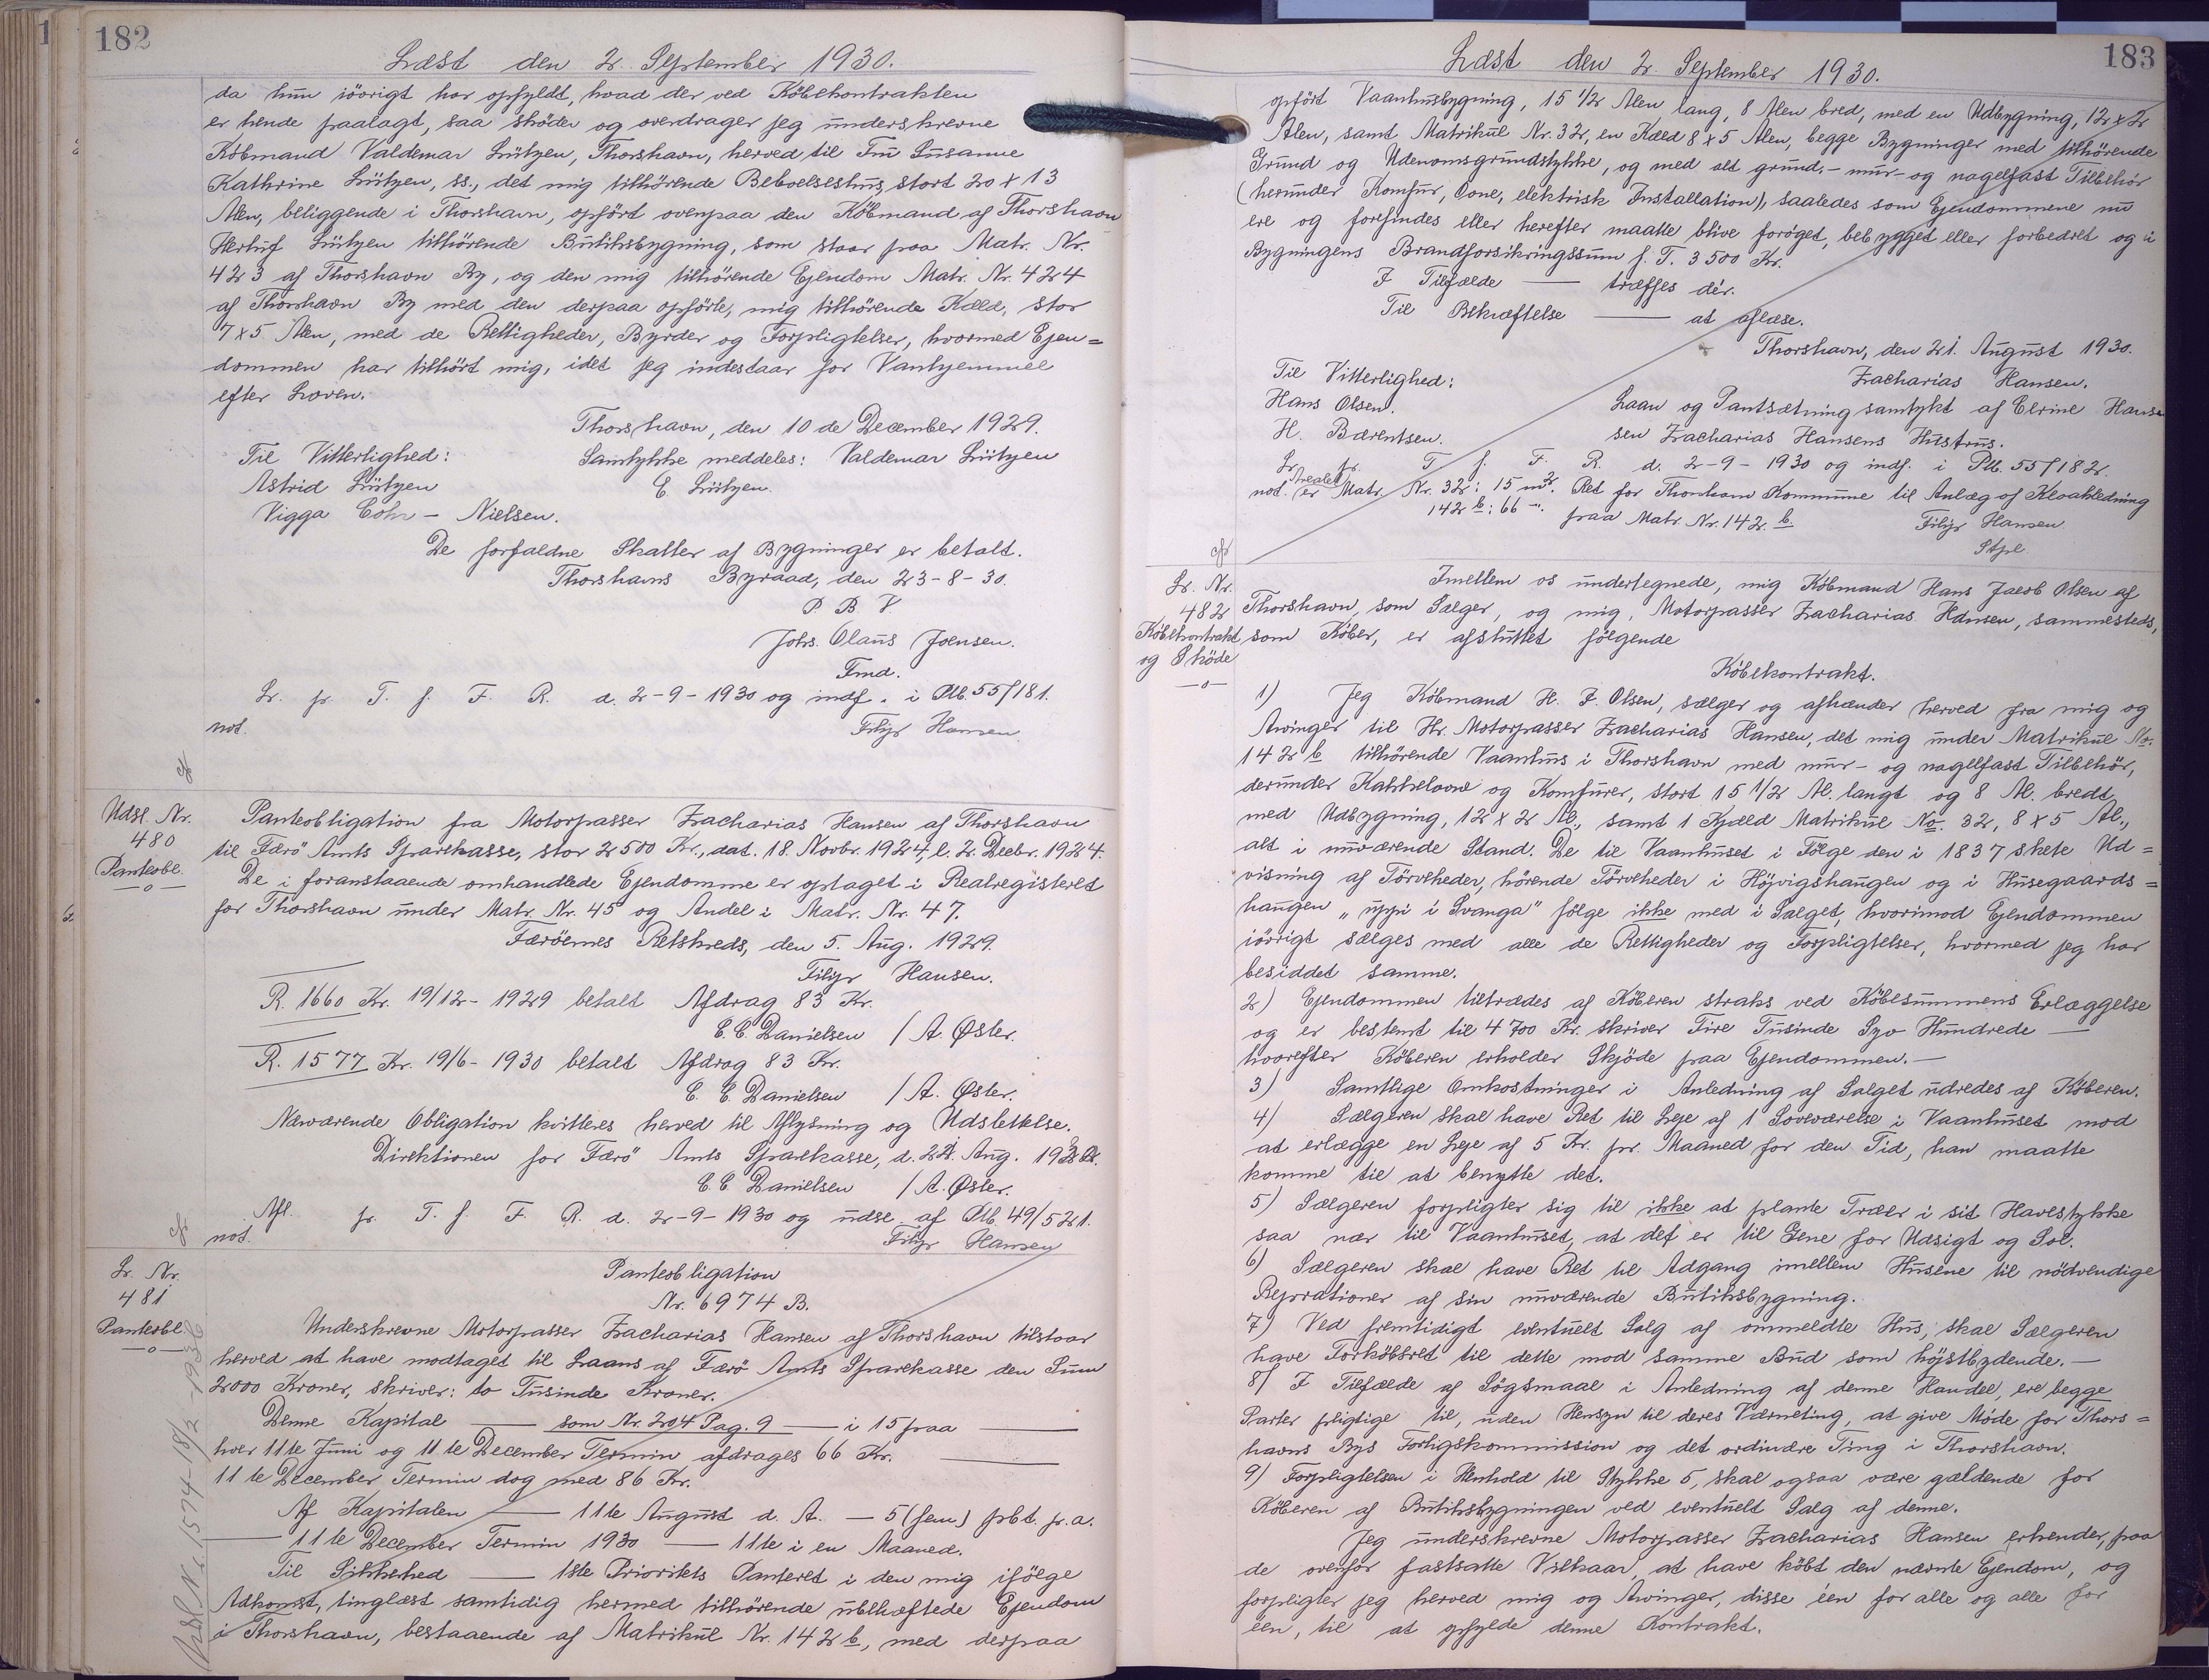 182
Læst den 2. September 1930.
da hun iövrigt har opfyldt, hvad der ved Köbekontrakten
er hende paalagt, saa sköder og overdrager jeg underskrevne
Köbmand Valdemar Lützen, Thorshavn, herved til Fru Susanne
Kathrine Lützen, ss., det mig tilhörende Beboelseshus, stort 20 x 13
Alen, beliggende i Thorshavn, opfört ovenpaa den Köbmand af Thorshavn
Herluf Lützen tilhörende Butiksbygning, som staar paa Matr. Nr.
423 af Thorshavn By, og den mig tilhörende Ejendom Matr. Nr. 424
af Thorshavn By med den derpaa opförte, mig tilhörende Kæld, stor
7x5 Alen, med de Rettigheder, Byrder og Forpligtelser, hvormed Ejen=
dommen har tilhört mig, idet jeg indestaar for Vanhjemmel
efter Loven.
Thorshavn, den 10 de December 1929.
Til Vitterlighed: Samtykke meddeles: Valdemar Lützen
Astrid Lützen E. Lützen.
Vigga Cohr - Nielsen.
De forfaldne Skatter af Bygninger er betalt.
Thorshavns Byraad, den 23-8-30.
P. B. V
Johs. Olaus Joensen.
Fmd.
Lr. pr. T. f. F. R. d. 2-9-1930 og indf. i Ptb. 55/181.
not. Filip Hansen.
Udsl. Nr.
480
Panteobl.
—o—
Panteobligation fra Motorpasser Zacharias Hansen af Thorshavn
til Færö Amts Sparekasse, stor 2500 Kr., dat. 18. Novbr. 1924, l. 2. Decbr. 1924.
De i foranstaaende omhandlede Ejendomme er optaget i Realregisteret
for Thorshavn under Matr. Nr. 45 og Andel i Matr. Nr. 47.
Færöernes Retskreds, den 5. Aug. 1929.
Filip Hansen.
R. 1660 Kr. 19/12- 1929 betalt Afdrag 83 Kr.
C. C. Danielsen / A. Øster.
R. 1577 Kr. 19/6- 1930 betalt Afdrag 83 Kr.
C. C. Danielsen / A. Øster.
Nærværende Obligation kvitteres herved til Aflysning og Udslettelse.
Direktionen for Færö Amts Sparekasse, d. Aug.
C. C Danielsen / A. Øster.
Afl. pr. T. f. F. R. d. 2-9-1930 og udsl. af Ptb. 49/521.
not. Filip Hansen
Lr. Nr.
481
Panteobl.
—o—
Panteobligation
Nr. 6974 B.
Underskrevne Motorpasser Zacharias Hansen af Thorshavn tilstaar
herved at have modtaget til Laans af Færö Amts Sparekasse den Sum
2000 Kroner, skriver: to Tusinde Kroner.
Denne Kapital — som Nr. 204 Pag. 9 — i 15 paa —
hver 11te Juni og 11te December Termin afdrages 66 Kr. —
11te December Termin dog med 86 Kr.
Af Kapitalen — 11te August d. A. — 5 (fem) pCt. p. a.
— 11te December Termin 1930 — 11te i en Maaned.
Til Sikkerhed — 1ste Prioritets Panteret i den mig ifölge
Adkomst, tinglæst samtidig hermed tilhörende ubehæftede Ejendom
i Thorshavn, bestaaende af Matrikul Nr. 142 b, med derpaa
Udsl. Nr. 1574
183
Læst den 2. September 1930.
opfört Vaanhusbygning, 15 1/2 Alen lang, 8 Alen bred, med en Udbygning, 12 x 2
Alen, samt Matrikul Nr. 32, en Kæld 8 x 5 Alen, begge Bygninger med tilhörende
Grund og Udenomsgrundstykke, og med alt grund-, mur- og nagelfast Tilbehör
(herunder Komfur, Ovne, elektrisk Installation), saaledes som Ejendommene nu
ere og forefindes eller herefter maatte blive foröget, bebygget eller forbedret og i
Bygningens Brandforsikringssum f. T. 3500 Kr.
I Tilfælde — træffes dér.
Til Bekræftelse — at aflæse.
Thorshavn, den 21. August 1930.
Til Vitterlighed: Zacharias Hansen.
Hans Olsen. Laan og Pantsætning samtykt af Elrine Hansen
H. Bærentsen. sen Zacharias Hansens Hustru.
Lr. pr. T. f. F. R. d. 2-9-1930 og indf. i Ptb. 55/182.
not. Arealet er Matr. Nr. 32: 15 m². Ret for Thorshavn Kommune til Anlæg af Kloakledning
142 b: 66 -". paa Matr. Nr. 142 b. Filip Hansen.
Stpl.
Lr. Nr.
482
Köbekontrakt
og Sköde
—o—
Imellem os undertegnede, mig Köbmand Hans Jacob Olsen af
Thorshavn, som Sælger, og mig, Motorpasser Zacharias Hansen, sammesteds,
som Köber, er afsluttet fölgende
Köbekontrakt.
1) Jeg Köbmand H. J. Olsen, sælger og afhænder herved fra mig og
Arvinger til Hr. Motorpasser Zacharias Hansen, det mig under Matrikul No.
142 b tilhörende Vaanhus i Thorshavn med mur- og nagelfast Tilbehör,
derunder Kakkelovne og Komfurer, stort 15 1/2 Al. langt og 8 Al. bredt,
med Udbygning, 12 x 2 Al., samt 1 Kjæld Matrikul No. 32, 8 x 5 Al.,
alt i nuværende Stand. De til Vaanhuset i Fölge den i 1837 skete Ud=
visning af Törveheder, hörende Törveheder i Höjvigshaugen og i Husegaards=
haugen „uppi i Svanga" fölge ikke med i Salget, hvorimod Ejendommen
iövrigt sælges med alle de Rettigheder og Forpligtelser, hvormed jeg har
besiddet samme.
2) Ejendommen tiltrædes af Köberen straks ved Köbesummens Erlæggelse
og er bestemt til 4700 Kr. skriver Fire Tusinde Syv Hundrede —
hvorefter Köberen erholder Skjöde paa Ejendommen. —
3) Samtlige Omkostninger i Anledning af Salget udredes af Köberen.
4) Sælgeren skal have Ret til Leje af 1 Soveværelse i Vaanhuset mod
at erlægge en Leje af 5 Kr. pr. Maaned for den Tid, han maatte
komme til at benytte det.
5) Sælgeren forpligter sig til ikke at plante Træer i sit Havestykke
saa nær til Vaanhuset, at det er til Gene for Udsigt og Sol.
6) Sælgeren skal have Ret til Adgang imellem Husene til nödvendige
Reprationer af sin nuværende Butiksbygning.
7) Ved fremtidigt eventuelt Salg af ommeldte Hus, skal Sælgeren
have Forköbsret til dette mod samme Bud som höjstbydende. —
8) I Tilfælde af Sögsmaal i Anledning af denne Handel, ere begge
Parter pligtige til, uden Hensyn til deres Værneting, at give Möde for Thors=
havns Bys Forligskommission og det ordinære Ting i Thorshavn.
9) Forpligtelsen i Henhold til Stykke 5, skal ogsaa være gældende for
Köberen af Butiksbygningen ved eventuelt Salg af denne.
Jeg underskrevne Motorpasser Zacharias Hansen erkender, paa
de ovenfor fastsatte Vilkaar, at have köbt den nævnte Ejendom, og
forpligter jeg herved mig og Arvinger, disse éen for alle og alle for
éen, til at opfylde denne Kontrakt.